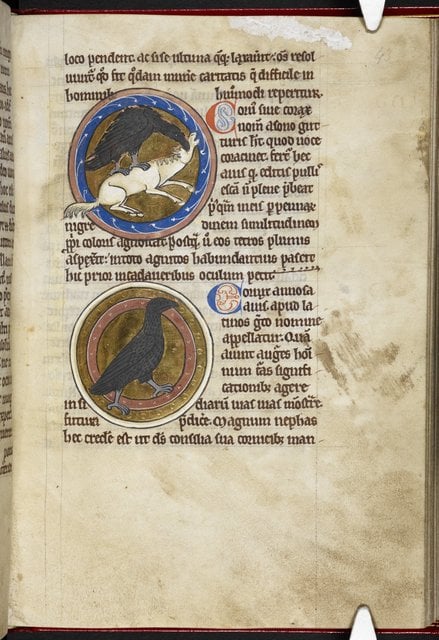 loco pendent. ac si se ultima q̄q; laxauerit: om̄s resol
uunt͛ qd̛ fit q̄dam munere caritatis qd̛ difficile in
hominib; huiusmodi reperitur.
Coruus siue corax
nom̄ a sono gut
turis ht̄. quod uoce
coracinet. fert̛ hec
auis qd̛ editis pullis
escā ñ plene p̄beat
p̛usqā in eis p̛ pennarū
nigredinem similitudinem
p̛prii coloris agnoscat. postq̄ ů eos tetros plumis
aspexerit: in toto agnitos habundantius pascit.
hic prior in cadaueribus oculum petit.
Cornix annosa
auis apud la
tinos greco nomine
appellatur. Quā
aiunt augures homi
num curas signifi
cationib; agere
insidiarū uias monstrare
futura p̄dicere. Magnum nephas
hec credere est ut d̄s consilia sua cornicib; man